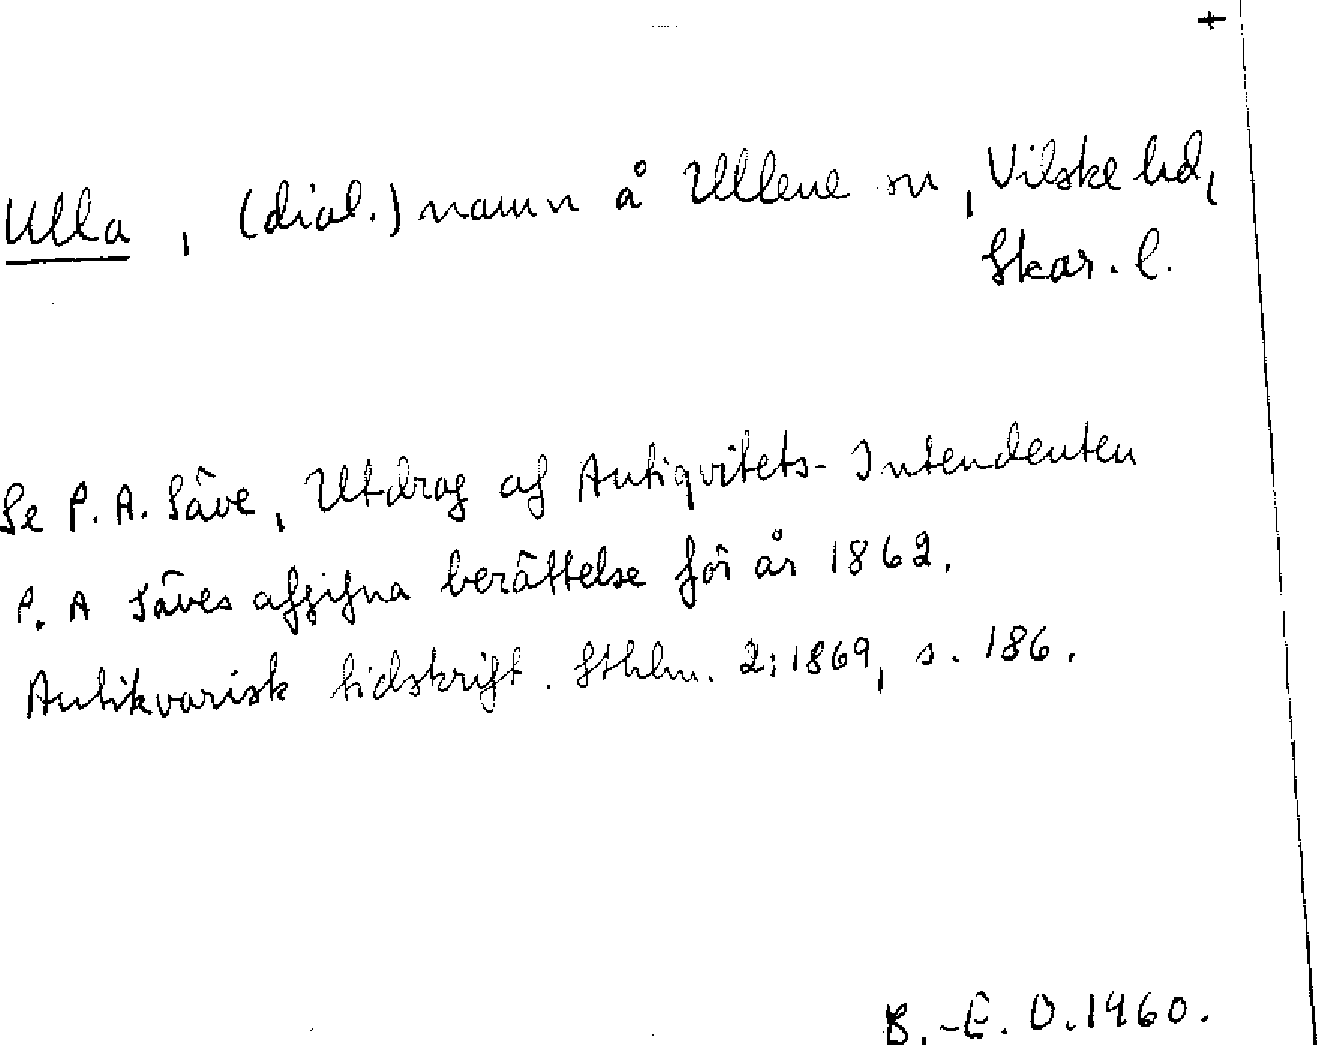 Ulla, (dial.) namn å Ullene sn, Vilske hd,
Skar. l.
Se P. A. Säve, Utdrag af Antiqvitets-Intendenten
P. A Säves afgifna berättelse för år 1862.
Antikvarisk tidskrift. Sthlm. 2:1869, s. 186.
B.-E. O. 1960.